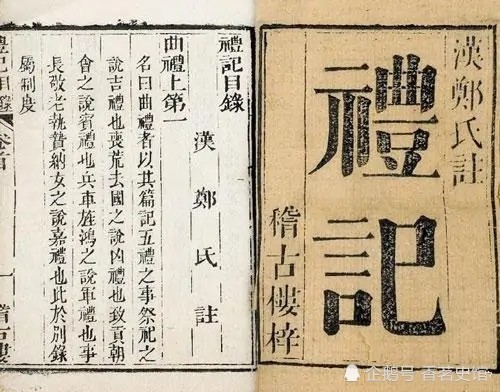 漢鄭氏註
禮記
稽古樓梓
禮記目錄
漢鄭氏註
曲禮上第一
名曰曲禮者以其篇記五禮之事祭祀之
說吉禮也喪荒去國之說凶禮也致貢朝
會之說賓禮也兵車旌鴻之說軍禮也事
長敬老執贄納女之說嘉禮也此於別錄
屬制度
禮記目錄 一 稽古樓
企鹅号